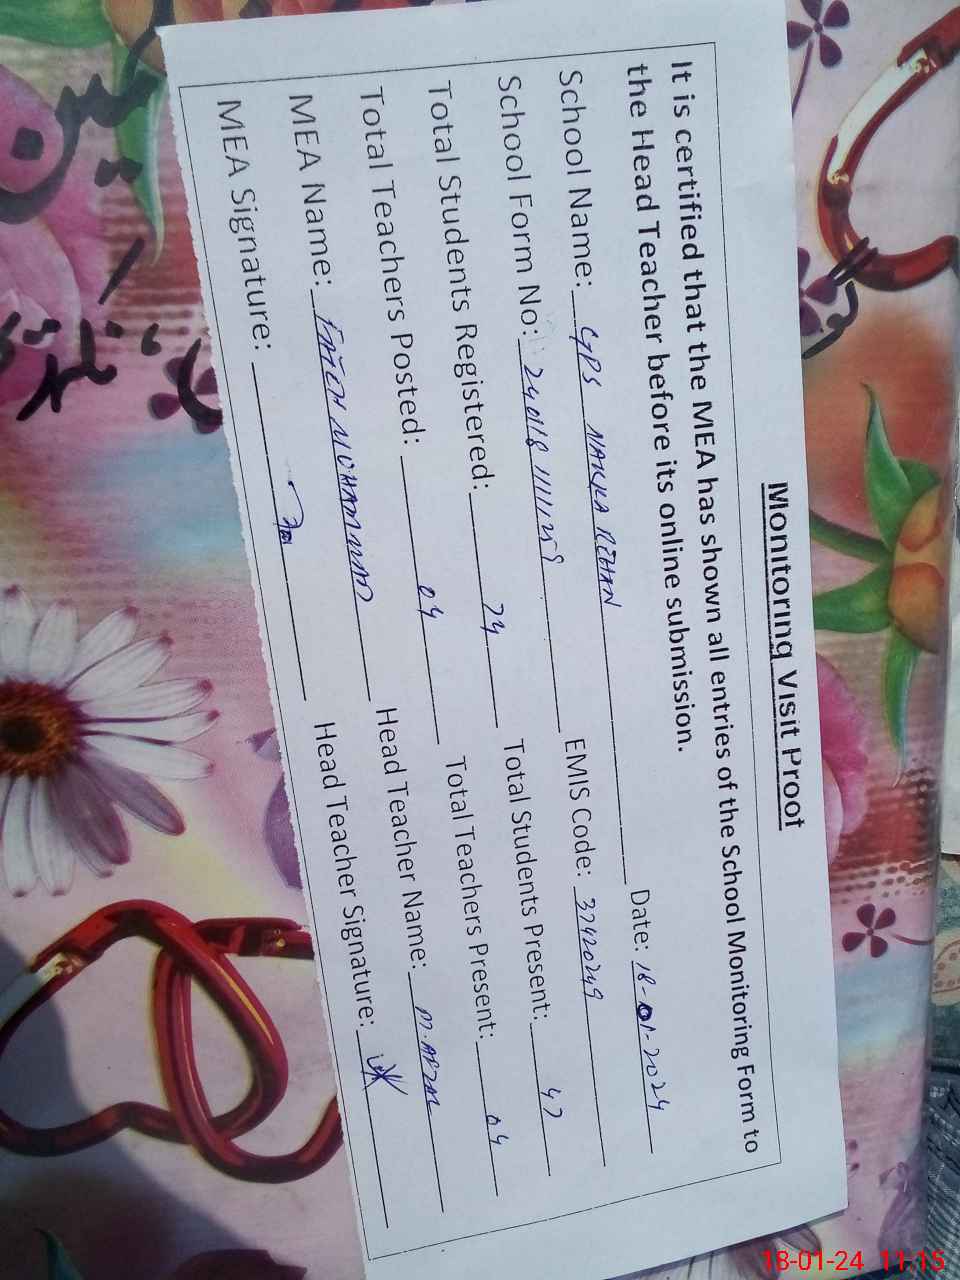 Monitoring Visit Proof
It is certified that the MEA has shown all entries of the School Monitoring Form to
the Head Teacher before its online submission.
School Name: GPS NAKKA REHAN Date: 18-01-2024
School Form No: 240118 111125 EMIS Code: 37420249
Total Students Registered: 74 Total Students Present: 47
Total Teachers Posted: 04 Total Teachers Present: 04
MEA Name: FATEH MUHAMMAD Head Teacher Name: M. AFZAL
MEA Signature: Head Teacher Signature:
18-01-24 11:15